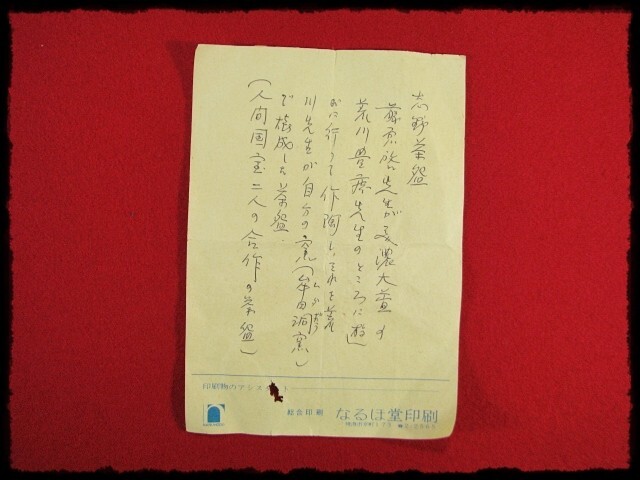 志野茶盌
藤原啓先生が美濃大萱の
荒川豊蔵先生のところに遊
びに行って作陶し、それを荒
川先生が自分の窯(牟田洞窯)
で焼成した茶盌.
(人間国宝二人の合作の茶盌)
印刷物のアシスタント
総合印刷 なるほ堂印刷